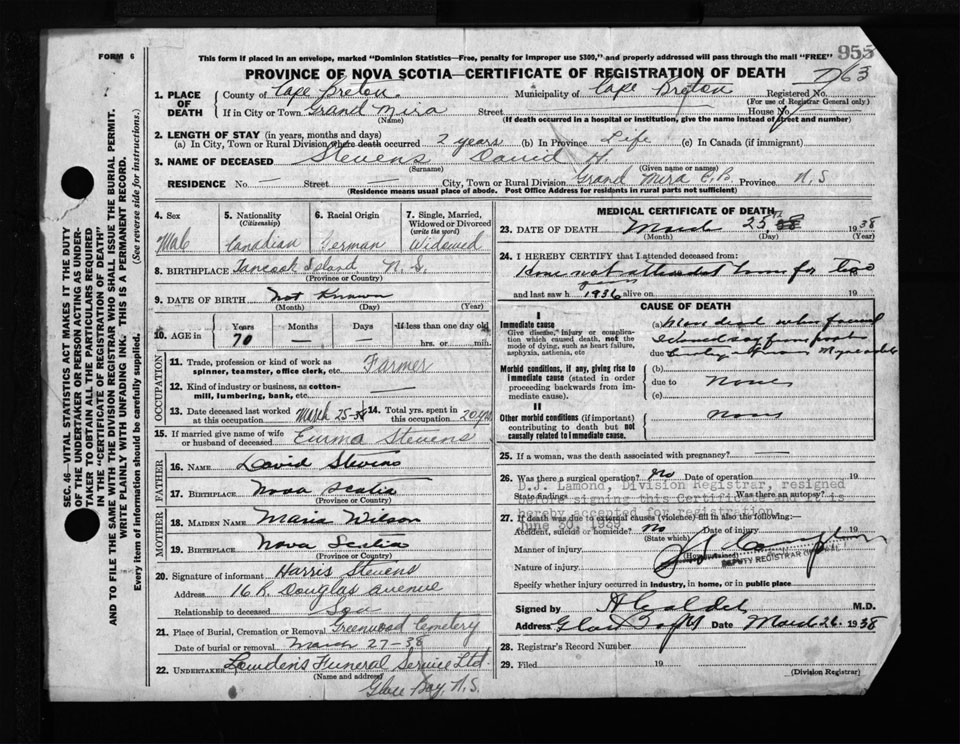 FORM 6
This form if placed in an envelope, marked "Dominion Statistics—Free, penalty for improper use $300," and properly addressed will pass through the mail "FREE"
955
PROVINCE OF NOVA SCOTIA—CERTIFICATE OF REGISTRATION OF DEATH
763
1. PLACE OF DEATH
County of Cape Breton
Municipality of Cape Breton
Registered No.
(For use of Registrar General only.)
If in City or Town Grand Mira Street House No.
(Name) (If death occurred in a hospital or institution, give the name instead of street and number)
2. LENGTH OF STAY (in years, months and days)
(a) In City, Town or Rural Division where death occurred 2 years (b) In Province Life (c) In Canada (if immigrant)
3. NAME OF DECEASED Stevens David H.
(Surname) (Given name or names)
RESIDENCE No. — Street — City, Town or Rural Division Grand Mira C.B. Province N.S
(Residence means usual place of abode. Post Office Address for residents in rural parts not sufficient)
4. Sex
Male
5. Nationality (Citizenship)
Canadian
6. Racial Origin
German
7. Single, Married, Widowed or Divorced (write the word)
Widowed
8. BIRTHPLACE Tancook Island N.S.
(Province or Country)
9. DATE OF BIRTH Not Known
(Month) (Day) (Year)
10. AGE in Years Months Days If less than one day old
70 — — hrs. or min.
OCCUPATION
11. Trade, profession or kind of work as spinner, teamster, office clerk, etc. Farmer
12. Kind of industry or business, as cotton-mill, lumbering, bank, etc. —
13. Date deceased last worked at this occupation March 25-38
14. Total yrs. spent in this occupation 20 yrs
15. If married give name of wife or husband of deceased Emma Stevens
FATHER
16. NAME David Stevens
17. BIRTHPLACE Nova Scotia
(Province or Country)
MOTHER
18. MAIDEN NAME Maria Wilson
19. BIRTHPLACE Nova Scotia
(Province or Country)
20. Signature of informant Harris Stevens
Address 16 R. Douglas Avenue
Relationship to deceased Son
21. Place of Burial, Cremation or Removal Greenwood Cemetery
Date of burial or removal March 27-38
22. UNDERTAKER Lowden's Funeral Service Ltd.
(Name and address)
Glace Bay, N.S.
MEDICAL CERTIFICATE OF DEATH
23. DATE OF DEATH March 25 1938
(Month) (Day) (Year)
24. I HEREBY CERTIFY that I attended deceased from:
Have not attended him for two
years
and last saw h 1936 alive on 19
CAUSE OF DEATH
I
Immediate cause
Give disease, injury or complication which caused death, not the mode of dying, such as heart failure, asphyxia, asthenia, etc
(a) Man dead when found
due
Morbid conditions, if any, giving rise to immediate cause (stated in order proceeding backwards from immediate cause).
(b)
due to None
(c)
II
Other morbid conditions (if important) contributing to death but not causally related to immediate cause.
None
25. If a woman, was the death associated with pregnancy? —
26. Was there a surgical operation? No Date of operation 19
State findings Was there an autopsy?
D.J. Lamond, Division Registrar, resigned
before signing this Certificate and it is
hereby accepted for registration
June 30, 1939
27. If death was due to external causes (violence) fill in also the following:—
Accident, suicide or homicide? No Date of injury 19
(State which)
Manner of injury
(How sustained)
DEPUTY REGISTRAR GENERAL
Nature of injury
Specify whether injury occurred in industry, in home, or in public place
Signed by M.D.
Address Glace Bay NS Date March 26 1938
28. Registrar's Record Number
29. Filed 19
(Division Registrar)
SEC. 46—VITAL STATISTICS ACT MAKES IT THE DUTY
OF THE UNDERTAKER OR PERSON ACTING AS UNDER-
TAKER TO OBTAIN ALL THE PARTICULARS REQUIRED
IN THE "CERTIFICATE OF REGISTRATION OF DEATH"
AND TO FILE THE SAME WITH THE DIVISION REGISTRAR WHO SHALL ISSUE THE BURIAL PERMIT.
WRITE PLAINLY WITH UNFADING INK. THIS IS A PERMANENT RECORD.
Every item of information should be carefully supplied. (See reverse side for instructions.)